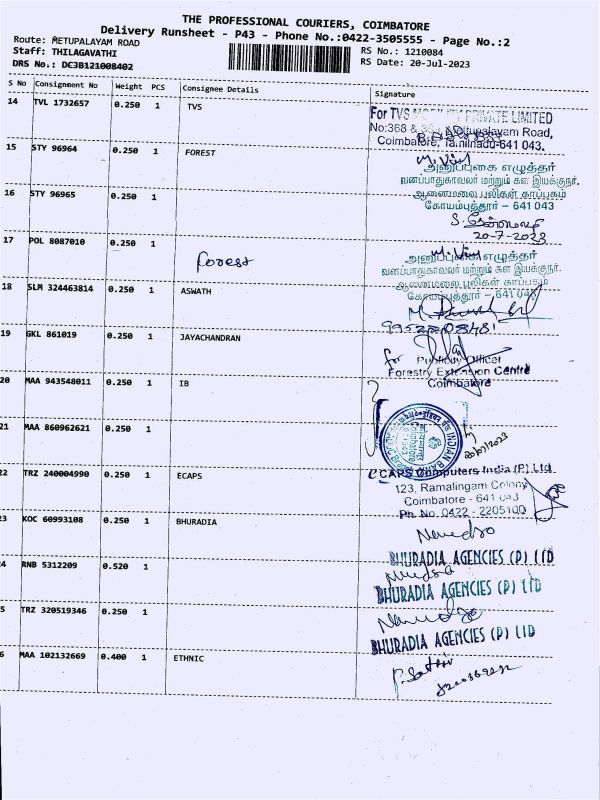 THE PROFESSIONAL COURIERS, COIMBATORE
Delivery Runsheet - P43 - Phone No.:0422-3505555 - Page No.:2
Route: METUPALAYAM ROAD
RS No.: 1210084
Staff: THILAGAVATHI
RS Date: 20-Jul-2023
DRS No.: DC3B121008402
S No Consignment No Weight PCS Consignee Details Signature
14 TVL 1732657 0.250 1 TVS
For TVS PRIVATE LIMITED
No:368 & Mettupalayam Road,
Coimbatore, Tamilnadu-641 043.
15 STY 96964 0.250 1 FOREST
அனுப்புகை எழுத்தர்
வனப்பாதுகாவலர் மற்றும் கள இயக்குநர்.
ஆனைமலை புலிகள் காப்பகம்
கோயம்புத்தூர் - 641 043
16 STY 96965 0.250 1
20-7-2023
17 POL 8087010 0.250 1
Forest
அனுப்புகை எழுத்தர்
வனப்பாதுகாவலர் மற்றும் கள இயக்குநர்.
ஆனைமலை புலிகள் காப்பகம்
கோயம்புத்தூர் - 641 043
18 SLM 324463814 0.250 1 ASWATH
19 GKL 861019 0.250 1 JAYACHANDRAN
for Publicity Officer
Forestry Extension Centre
Coimbatore
20 MAA 943548011 0.250 1 IB
INDIAN BANK
20/07/2023
21 MAA 860962621 0.250 1
22 TRZ 240004990 0.250 1 ECAPS
ECAPS Computers India (P) Ltd
123, Ramalingam Colony
Coimbatore - 641 043
Ph. No. 0422 - 2205100
23 KOC 60993108 0.250 1 BHURADIA
BHURADIA AGENCIES (P) LTD
24 RNB 5312209 0.520 1
BHURADIA AGENCIES (P) LTD
25 TRZ 320519346 0.250 1
BHURADIA AGENCIES (P) LTD
26 MAA 102132669 0.400 1 ETHNIC